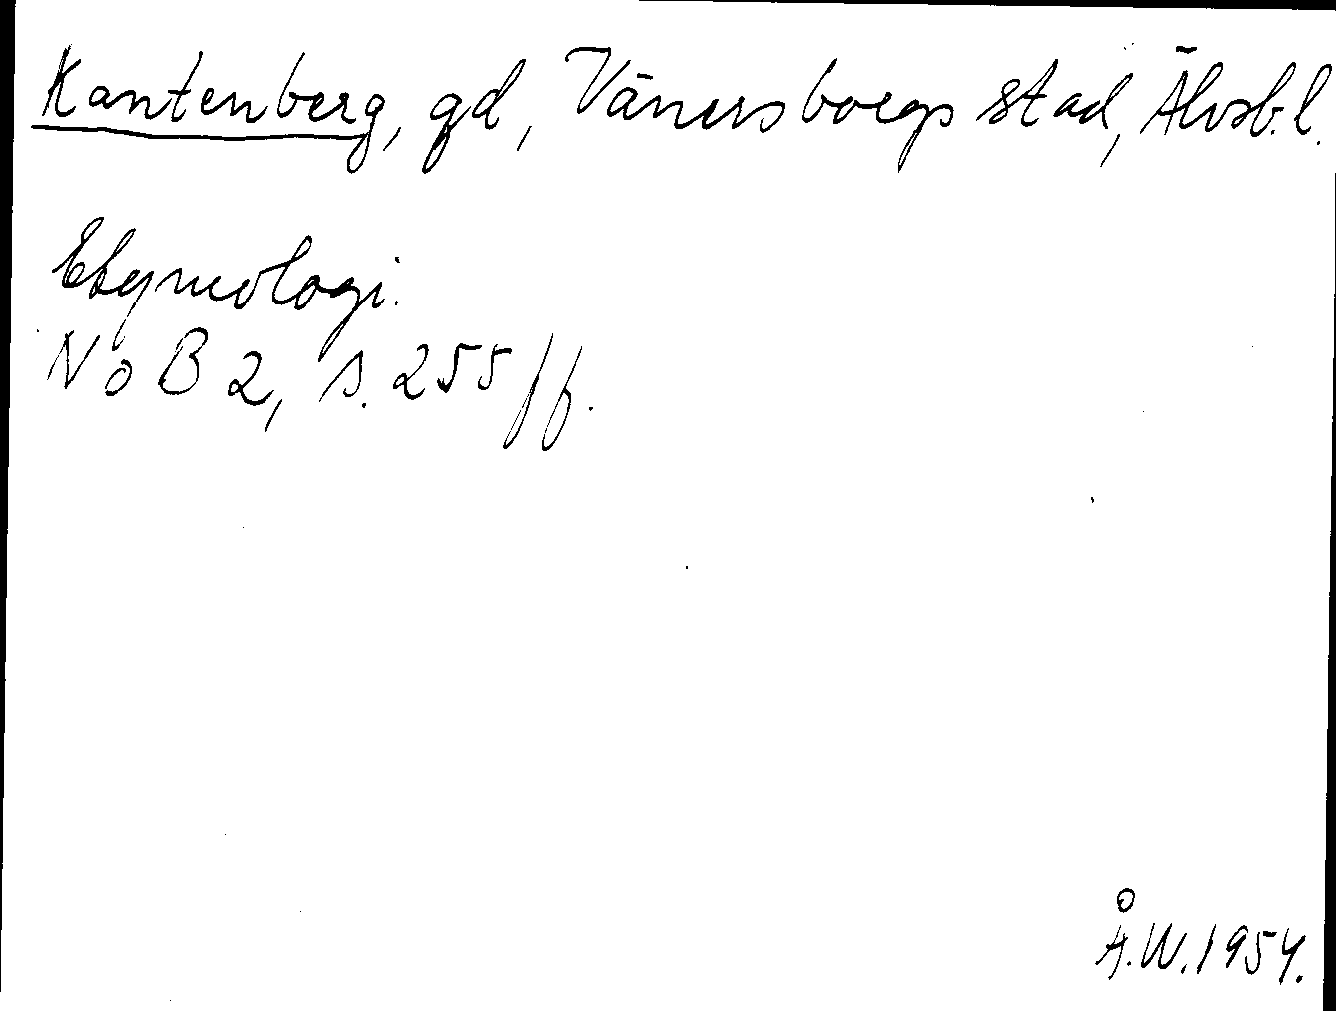 Kantenberg, gd, Vänersborgs stad, Älvsb. l.
Etymologi.
NoB 2, s. 255 ff.
Å.W. 1954.